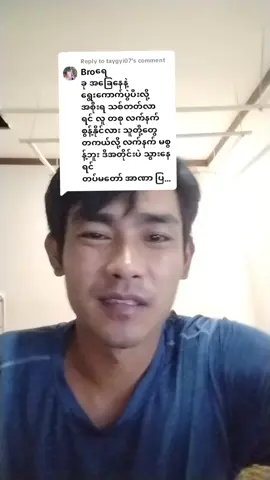 Reply to taygyi07's comment
Broရေ
ခု အခြေနေနဲ့
ရွေးကောက်ပွဲပီးလို့
အစိုးရ သစ်တတ်လာ
ရင် လူ တစု လက်နက်
စွန့်နိုင်လား သူတို့တွေ
တကယ်လို့ လက်နက် မစွ
န့်ဘူး ဒီအတိုင်းပဲ သွားနေ
ရင်
တပ်မတော် အာဏာ ပြ...